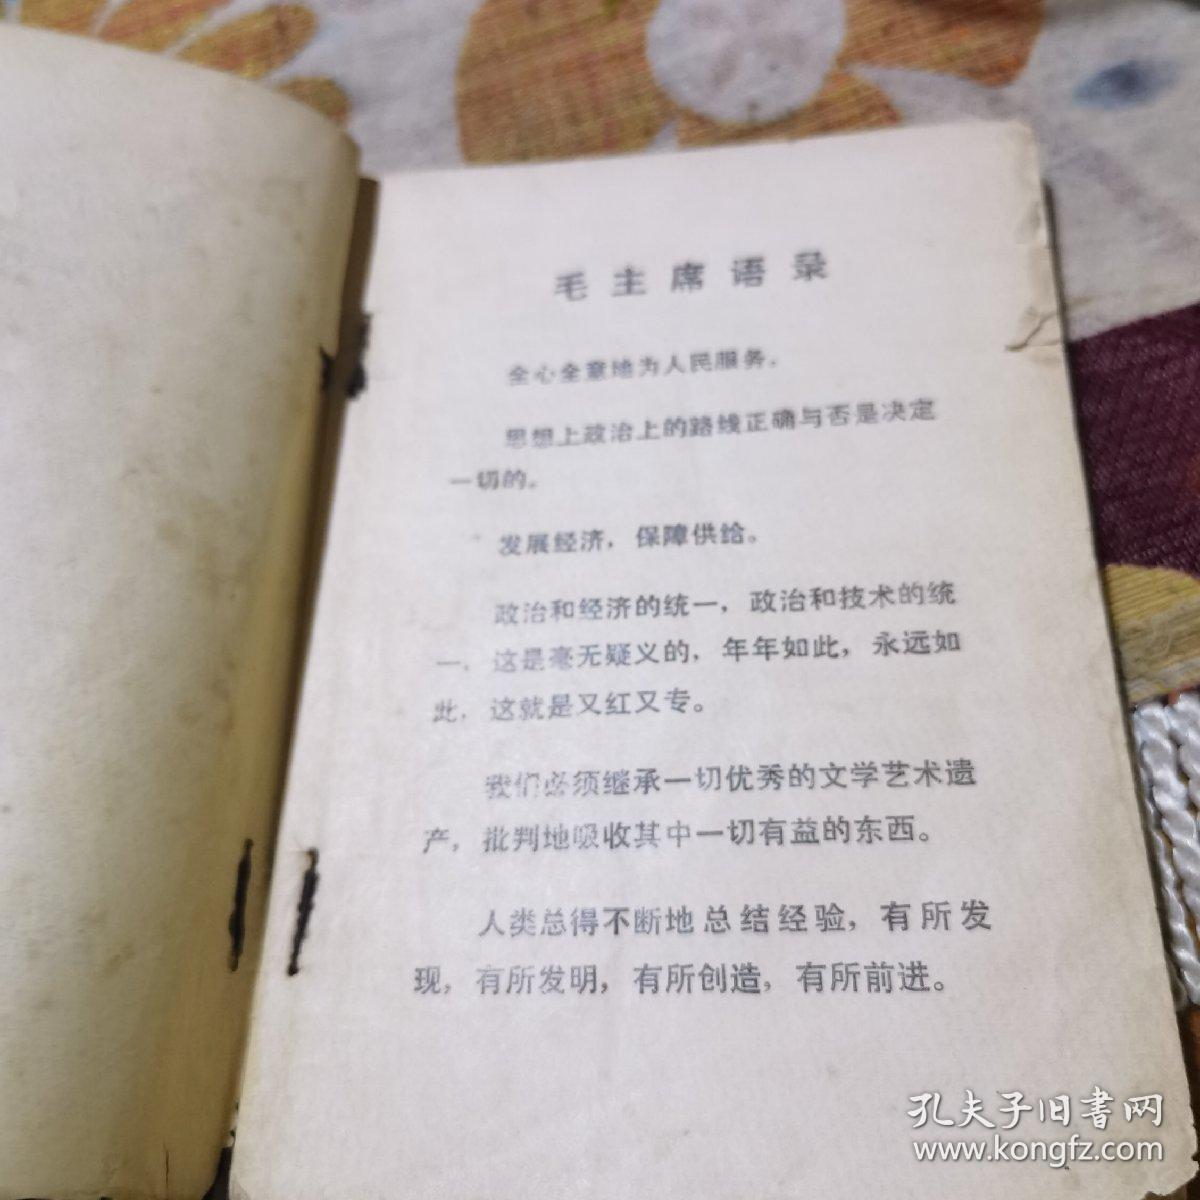 毛主席语录
全心全意地为人民服务。
思想上政治上的路线正确与否是决定
一切的。
发展经济，保障供给。
政治和经济的统一，政治和技术的统
一，这是毫无疑义的，年年如此，永远如
此，这就是又红又专。
我们必须继承一切优秀的文学艺术遗
产，批判地吸收其中一切有益的东西。
人类总得不断地总结经验，有所发
现，有所发明，有所创造，有所前进。
孔夫子旧书网
www.kongfz.com